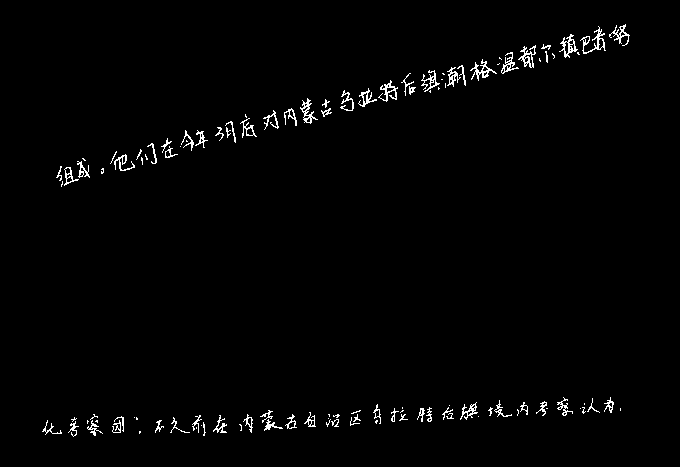 组成。他们在今年3月底对内蒙古乌拉特后旗潮格温都尔镇巴音努
化考察团”,不久前在内蒙古自治区乌拉特后旗境内考察认为,